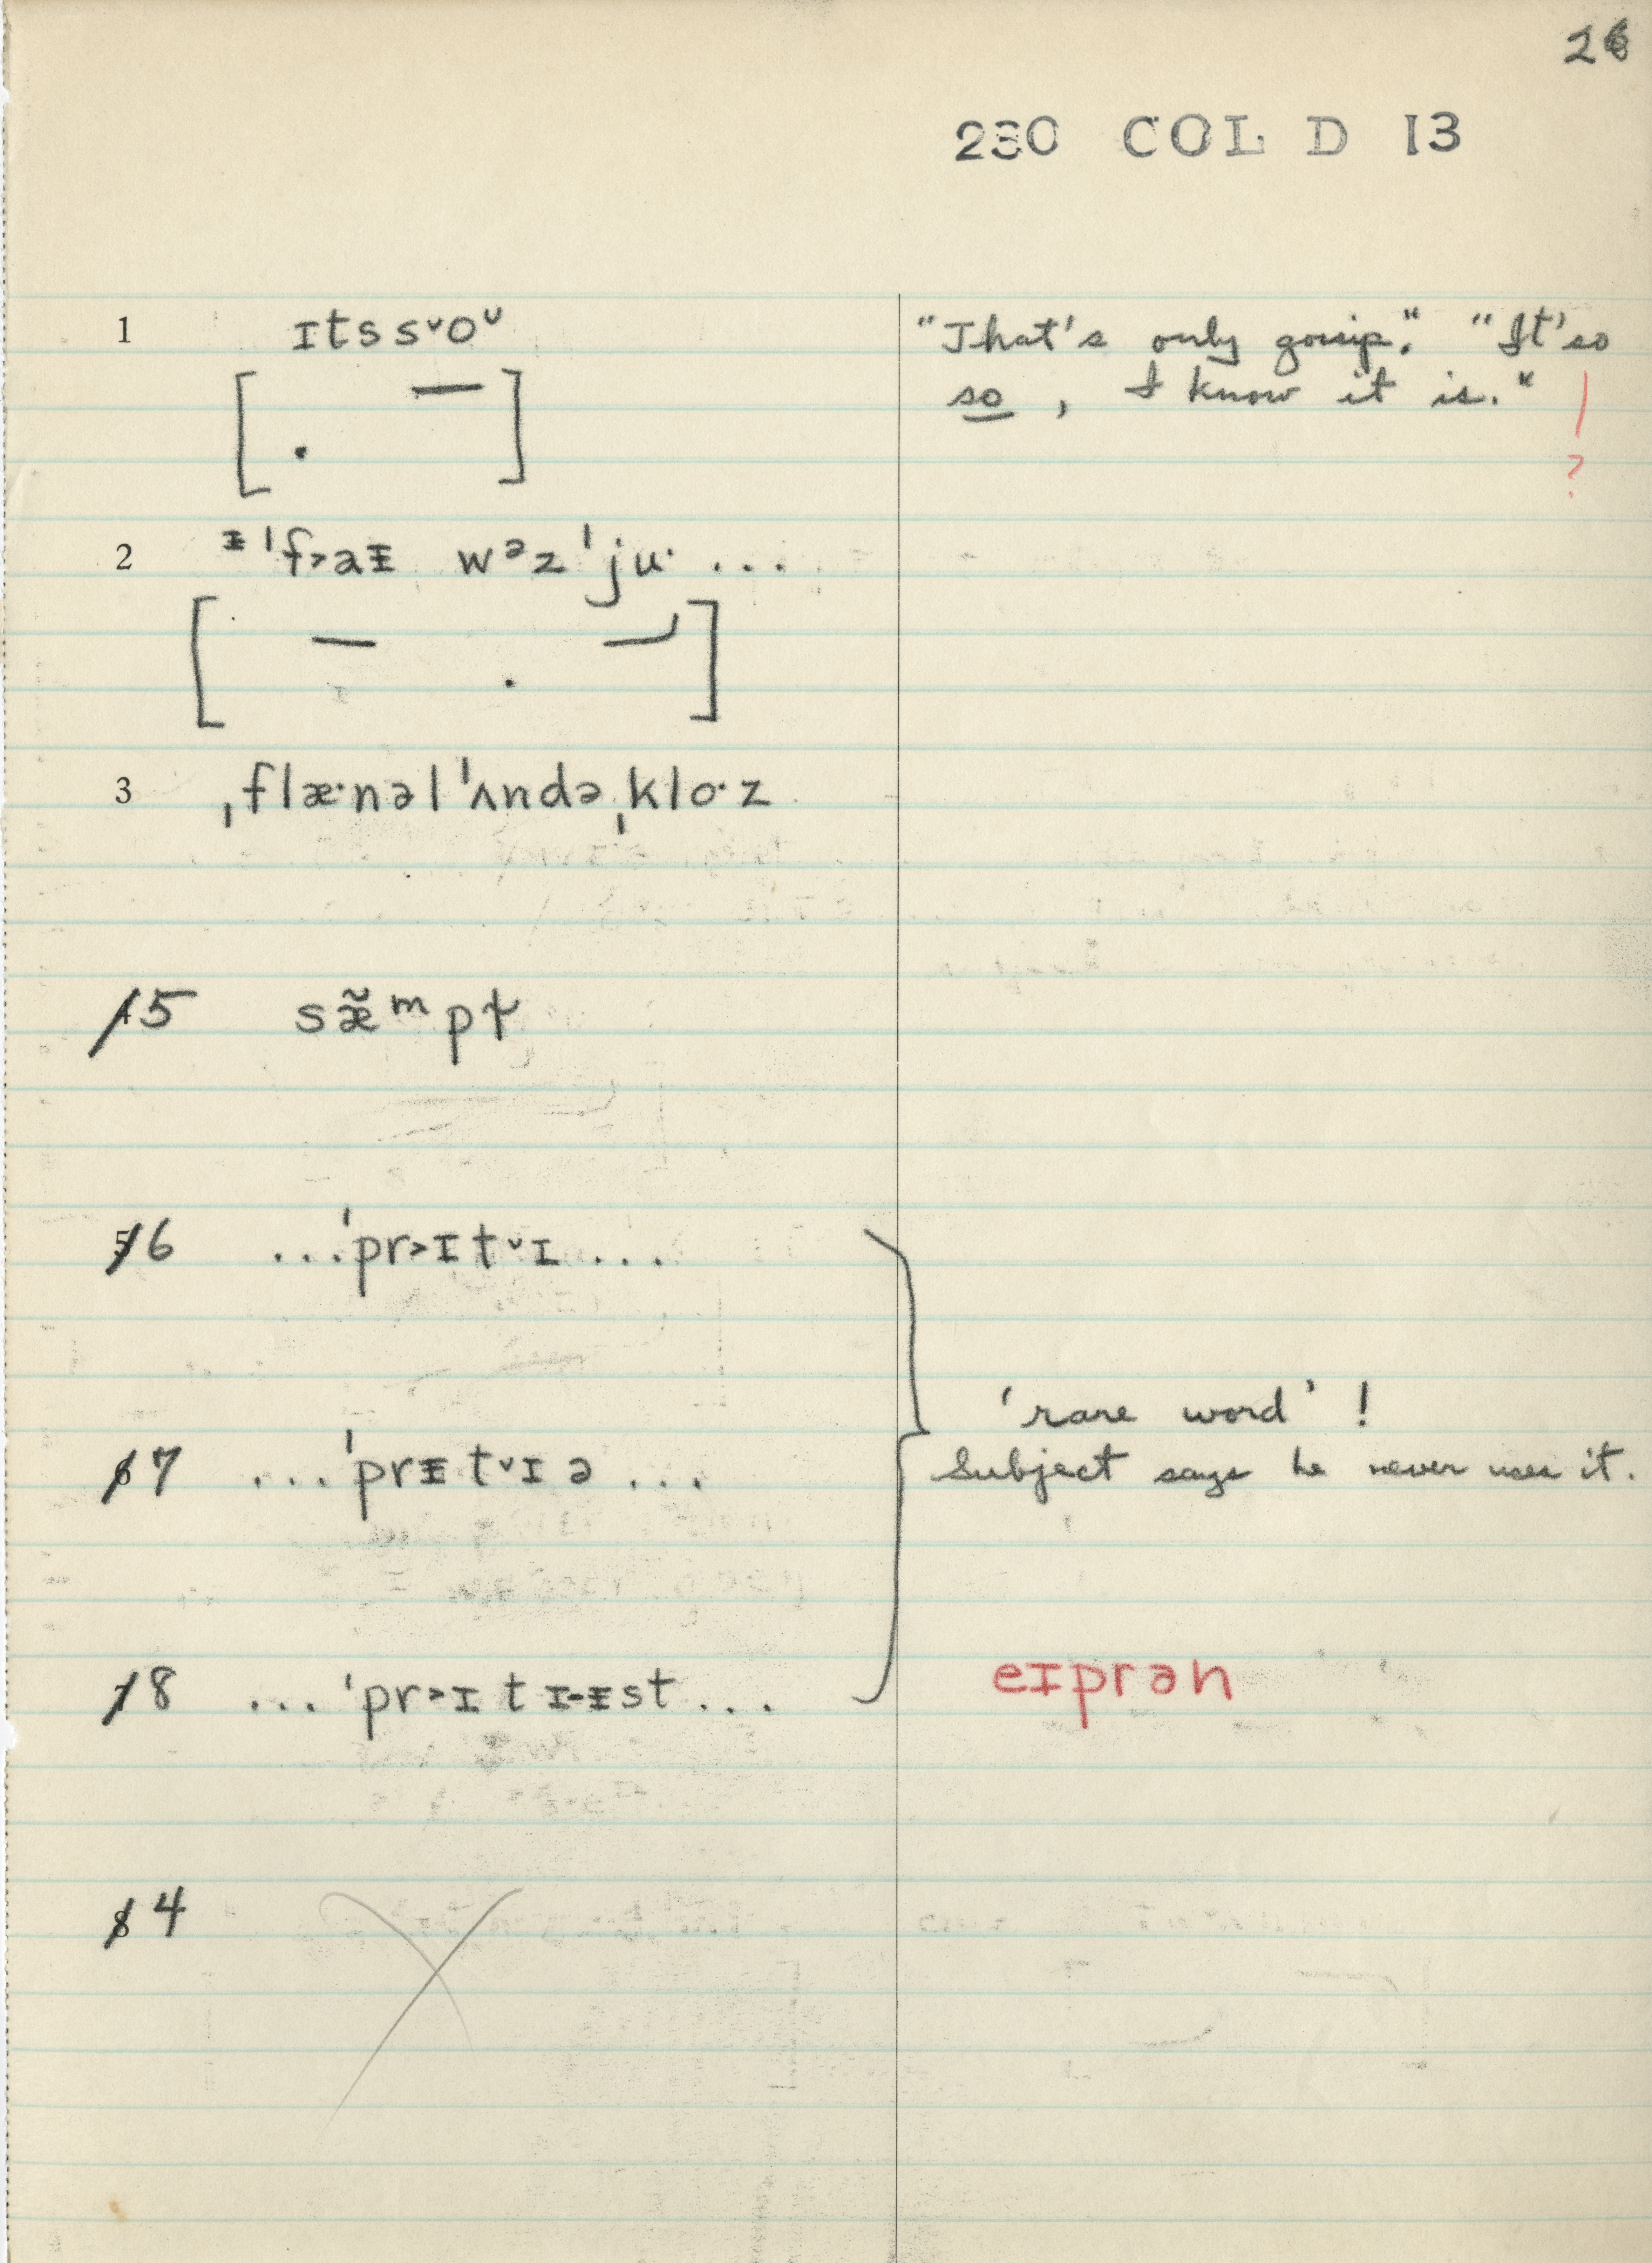 26
230 COL D 13
1 ɪtssˇoᵁ "That's only gossip." "It'so
so, I know it is."
?
2 ᵻˈf˃aᵻ wᵊzˈju· ...
3 ˌflæ·nəlˈʌndəˌklo·z
5 sæ̃ᵐpt̡
6 ...ˈpr˃ɪtˇɪ...
'rare word'!
7 ...ˈprᵻtˇɪə... Subject says he never uses it.
8 ...ˈpr˃ɪtɪ-ᵻst... eɪprən
4